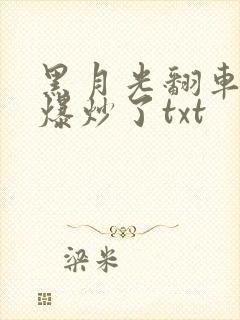 黑月光翻车
爆炒了txt
梁米